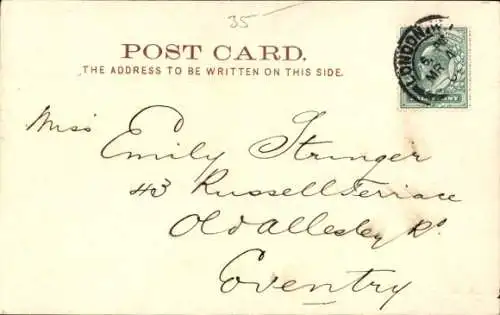 35
POST CARD.
THE ADDRESS TO BE WRITTEN ON THIS SIDE.
LONDON. W.
MR
Miss
Emily Stringer
43 Russell Terrace
Old Allesley Rd.
Coventry